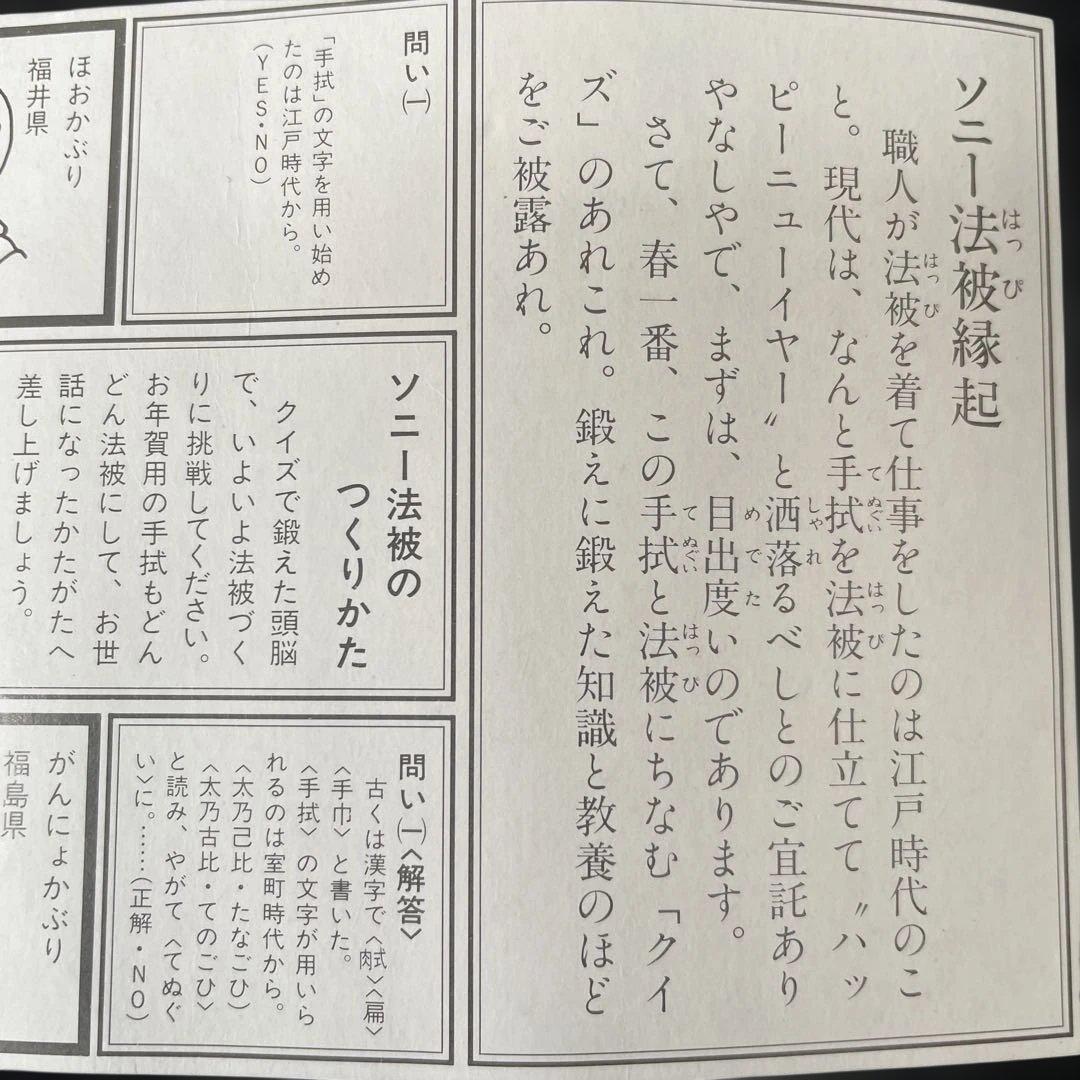 ソニー法被縁起
職人が法被を着て仕事をしたのは江戸時代のこ
と。現代は、なんと手拭を法被に仕立てて〝ハッ
ピーニューイヤー〟と洒落るべしとのご宣託あり
やなしやで、まずは、目出度いのであります。
さて、春一番、この手拭と法被にちなむ「クイ
ズ」のあれこれ。鍛えに鍛えた知識と教養のほど
をご被露あれ。
問い㈠
「手拭」の文字を用い始め
たのは江戸時代から。
(YES・NO)
ほおかぶり
福井県
ソニー法被の
つくりかた
クイズで鍛えた頭脳
で、いよいよ法被づく
りに挑戦してください。
お年賀用の手拭もどん
どん法被にして、お世
話になったかたがたへ
差し上げましょう。
問い㈠〈解答〉
古くは漢字で〈拭〉〈扁〉
〈手巾〉と書いた。
〈手拭〉の文字が用いら
れるのは室町時代から。
〈太乃己比・たなごひ〉
〈太乃古比・てのごひ〉
と読み、やがて〈てぬぐ
い〉に。……(正解・NO)
がんにょかぶり
福島県